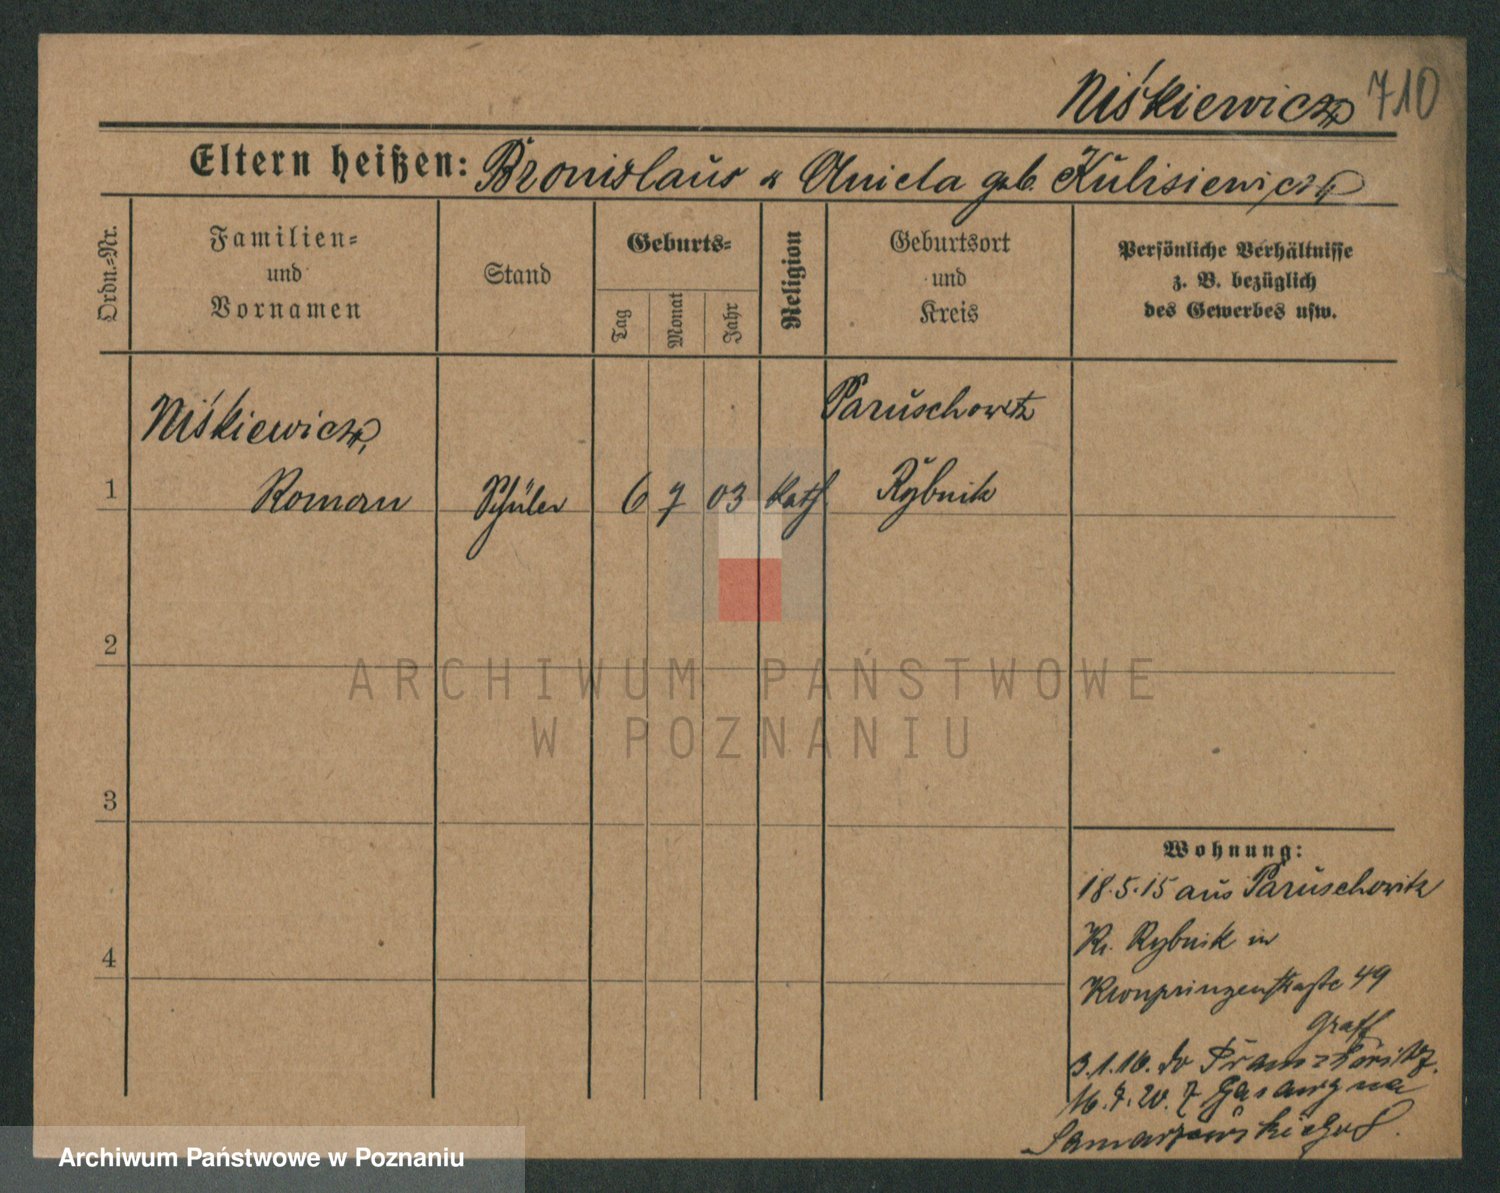 Niśkiewicz 710
Eltern heißen: Bronislaus u Aniela geb. Kulisiewicz
Ordn.-Nr.
Familien-
und
Vornamen
Stand
Geburts-
Tag
Monat
Jahr
Religion
Geburtsort
und
Kreis
Persönliche Verhältnisse
z. B. bezüglich
des Gewerbes usw.
Niśkiewicz, Paruschowitz
1 Roman Schüler 6 7 03 kath. Rybnik
2
3
4
Wohnung:
18.5.15 aus Paruschowitz
Kr. Rybnik in
Kronprinzenstraße 49
Graff
3.1.16. do Franz
16.7.20. 7
Samarzewskiego
ARCHIWUM PAŃSTWOWE
W POZNANIU
Archiwum Państwowe w Poznaniu